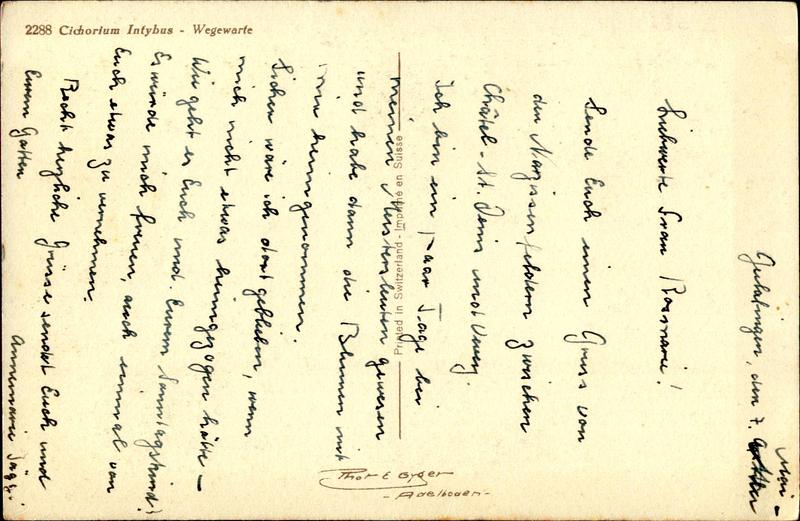 2288 Cichorium Intybus - Wegewarte
den 7. Mai -
Liebwerte Frau Rosmarie!
Sende Euch einen Gruss von
den Narzissenfeldern zwischen
Châtel-St. Denis und Vevey.
Ich bin ein paar Tage bei
meinen Meistersleuten gewesen
und habe dann die Blumen mit
mir heimgenommen.
Sicher wäre ich dort geblieben, wenn
mich nicht etwas heimgezogen hätte -
Wie geht es Euch und. Eurem Sonntagskind?
Es würde mich freuen, auch einmal von
Euch etwas zu vernehmen.
Recht herzliche Grüsse sendet Euch und
Eurem Gatten
Annemarie Jäggi.
Printed in Switzerland - Imprimé en Suisse
Phot E Gyger
- Adelboden -